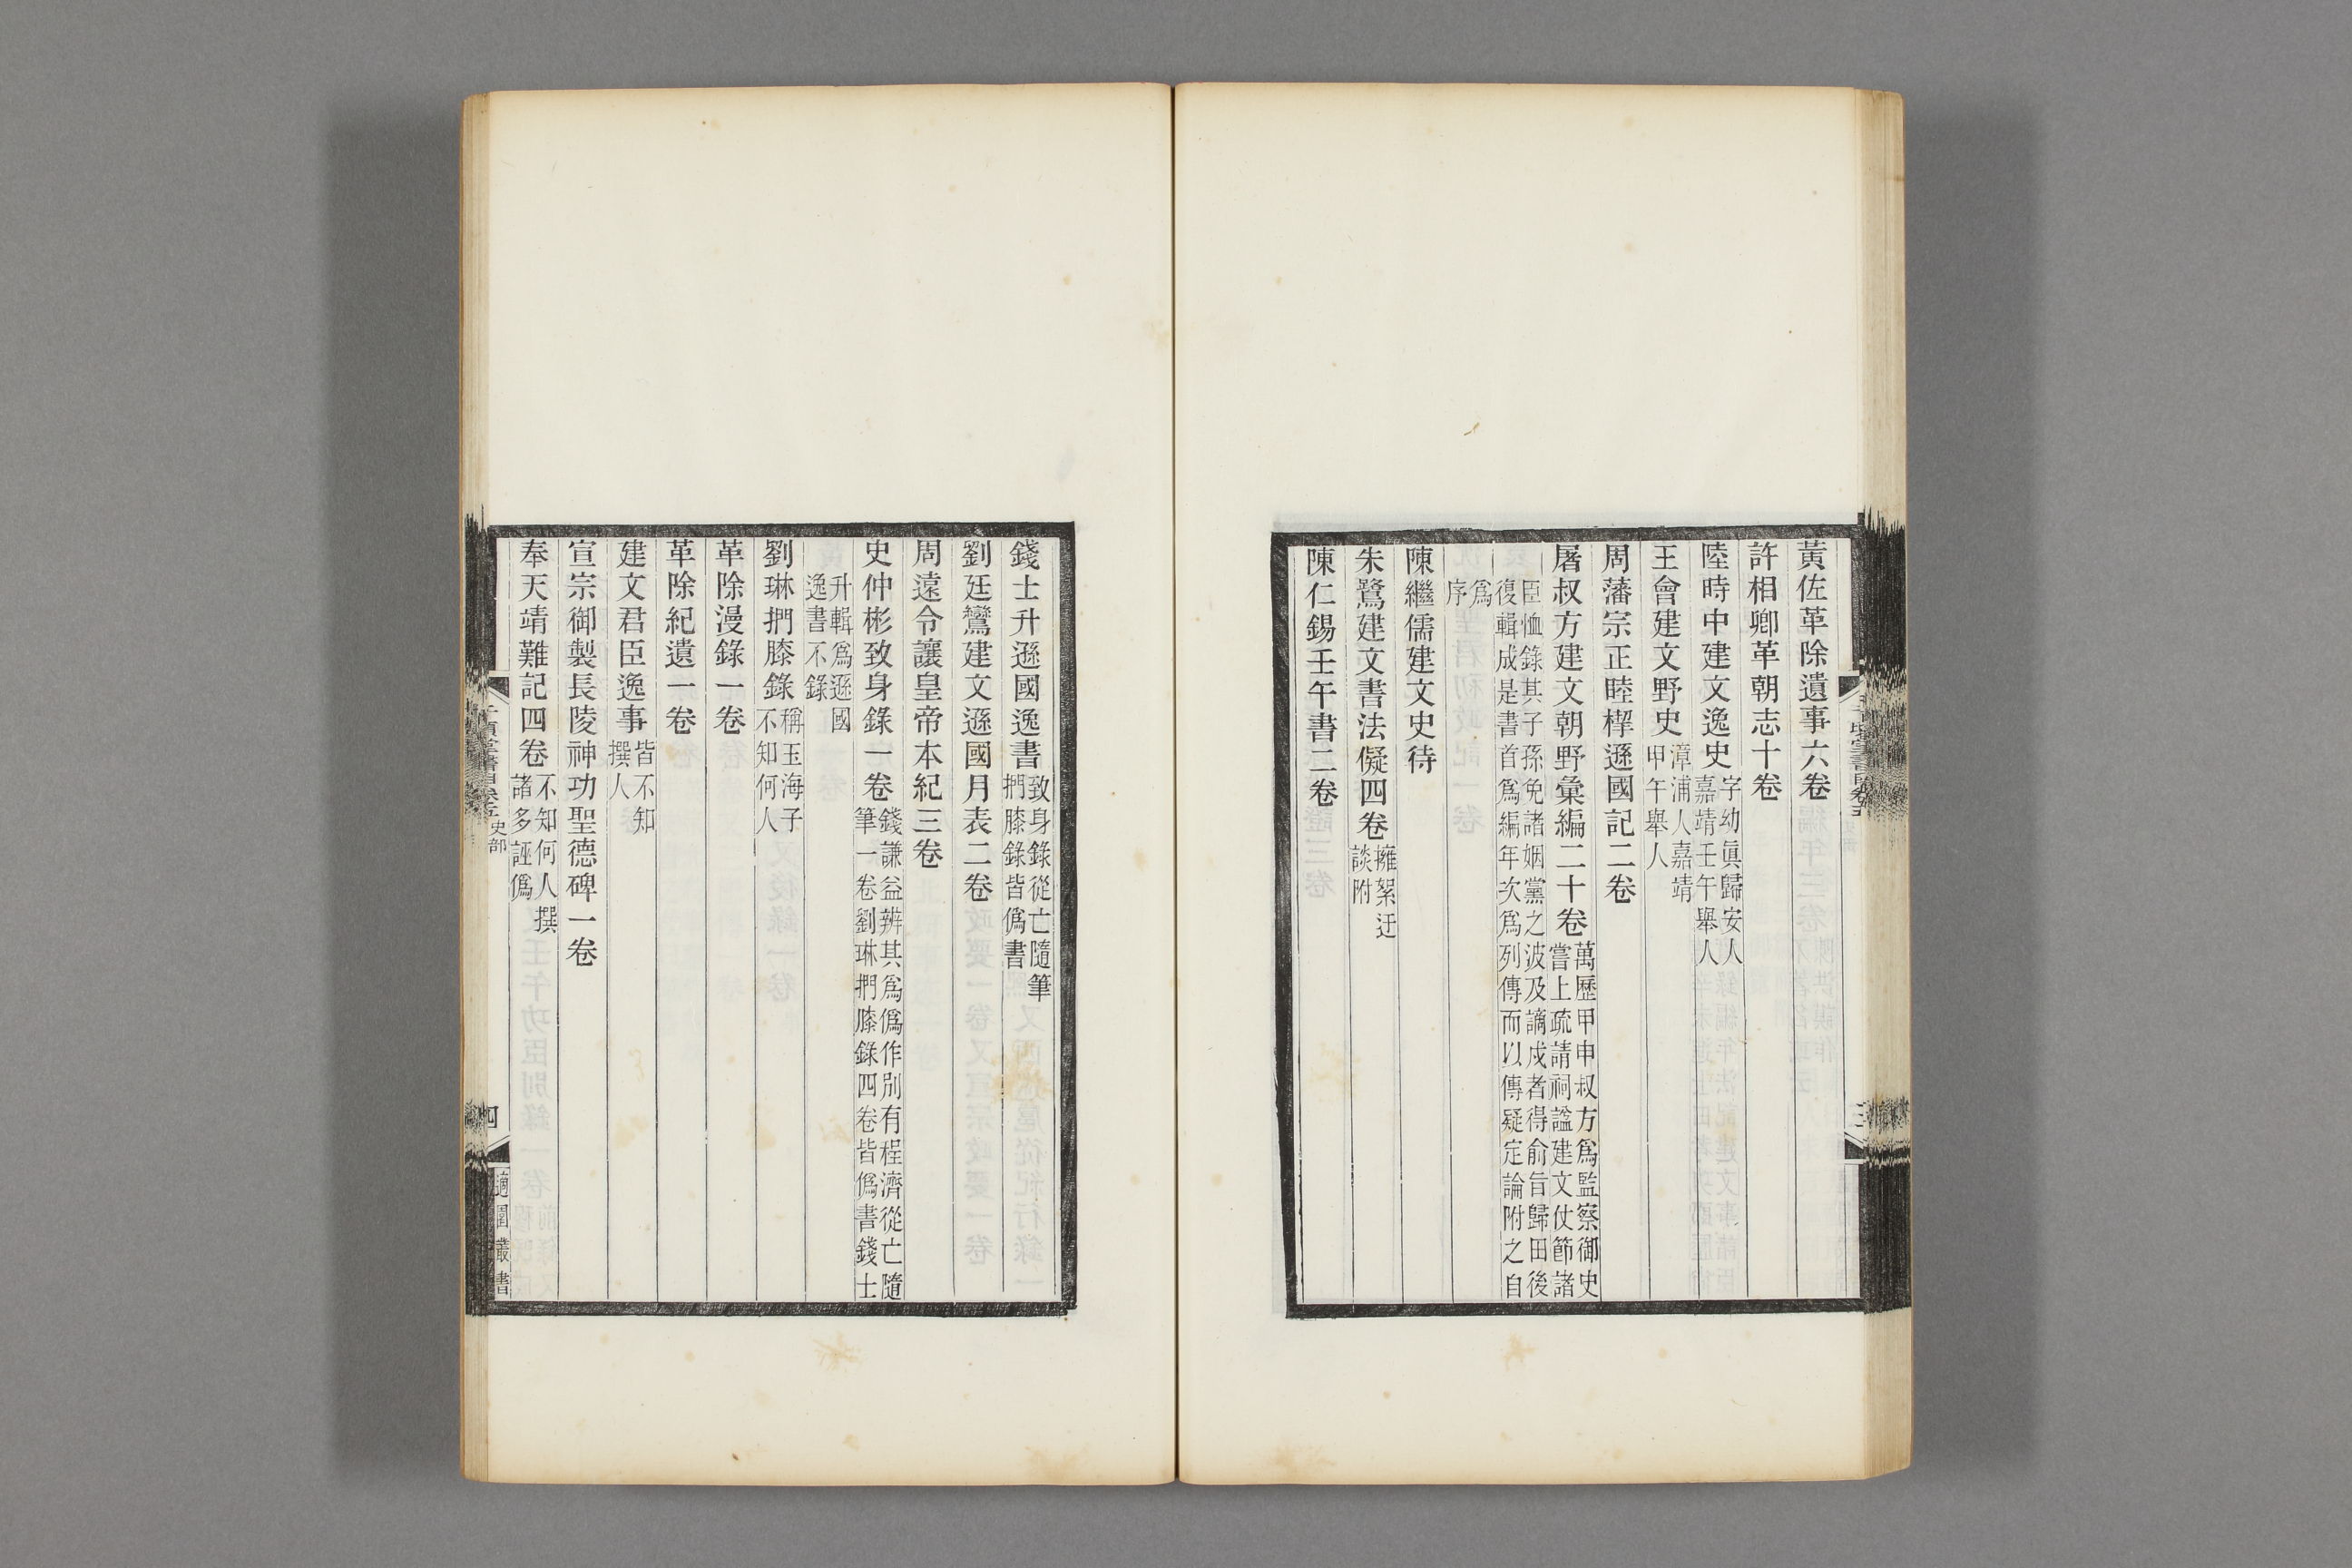 黃佐革除遺事六卷
許相卿革朝志十卷
陸時中建文逸史字幼眞歸安人嘉靖壬午舉人
王會建文野史漳浦人嘉靖甲午舉人
周藩宗正睦㮮遜國記二卷
屠叔方建文朝野彙編二十卷萬歷甲申叔方爲監察御史嘗上疏請祠謚建文仗節諸
臣恤錄其子孫免諸姻黨之波及謫戍者得俞旨歸田後復輯成是書首爲編年次爲列傳而以傳疑定論附之自
爲序
陳繼儒建文史待
朱鷺建文書法儗四卷擁絮迂談附
陳仁錫壬午書二卷
錢士升遜國逸書致身錄從亡隨筆捫膝錄皆僞書
劉廷鸞建文遜國月表二卷
周遠令讓皇帝本紀三卷
史仲彬致身錄一卷錢謙益辨其爲僞作別有程濟從亡隨筆一卷劉琳捫膝錄四卷皆僞書錢士
升輯爲遜國逸書不錄
劉琳捫膝錄稱玉海子不知何人
革除漫錄一卷
革除紀遺一卷
建文君臣逸事皆不知撰人
宣宗御製長陵神功聖德碑一卷
奉天靖難記四卷不知何人撰諸多誣僞
史部
四
適園叢書